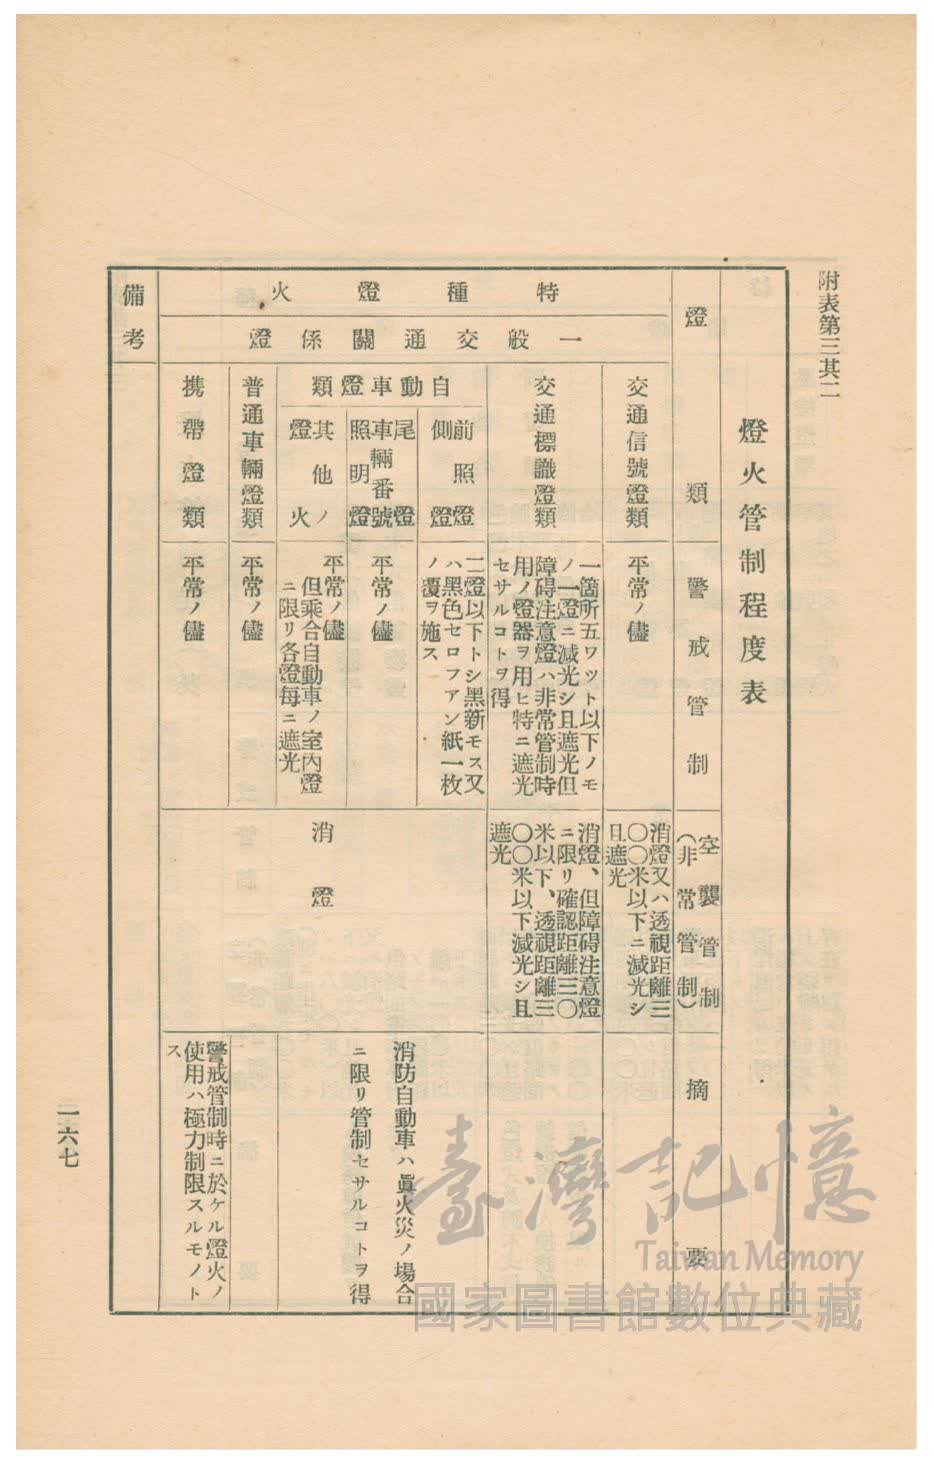 附表第三其二
燈火管制程度表
燈類
警戒管制
空襲管制
(非常管制)
摘要
特種燈火
一般交通關係燈
交通信號燈類
平常ノ儘
消燈又ハ透視距離三
〇〇米以下ニ減光シ
且遮光
交通標識燈類
一箇所五ワット以下ノモ
ノ一燈ニ減光シ且遮光但
障碍注意燈ハ非常管制時
用ノ燈器ヲ用ヒ特ニ遮光
セサルコトヲ得
消燈、但障碍注意燈
ニ限リ確認距離三〇
米以下、透視距離三
〇〇米以下減光シ且
遮光
自動車燈類
前照燈
側燈
二燈以下トシ黑新モス又
ハ黑色セロファン紙一枚
ノ覆ヲ施ス
尾燈
車輛番號
照明燈
平常ノ儘
其他ノ
燈火
平常ノ儘
但乘合自動車ノ室內燈
ニ限リ各燈每ニ遮光
消燈
消防自動車ハ眞火災ノ場合
ニ限リ管制セサルコトヲ得
普通車輛燈類
平常ノ儘
携帶燈類
平常ノ儘
警戒管制時ニ於ケル燈火ノ
使用ハ極力制限スルモノト
ス
備考
一六七
臺灣記憶
Taiwan Memory
國家圖書館數位典藏